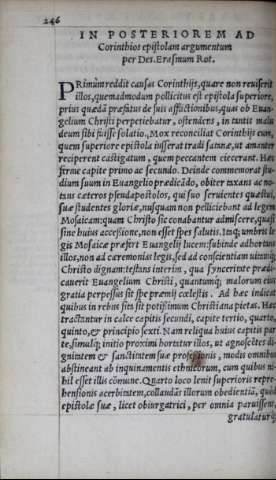 246
IN POSTERIOREM AD
Corinthios epistolam argumentum
per Des. Erasmum Rot.
PRimùm reddit causas Corinthijs, quare non reuiserit
illos, quemadmodum pollicitus est epistola superiore,
prius quædã præfatus de suis afflictionibus, quas ob Euan-
gelium Christi perpetiebatur, ostendens, in tantis malis
deum sibi fuisse solatio. Mox reconciliat Corinthijs eum,
quem superiore epistola iusserat tradi satanæ, ut amanter
reciperent castigatum, quem peccantem eiecerant. Hæc
ferme capite primo ac secundo. Deinde commemorat stu-
dium suum in Euangelio prædicãdo, obiter taxans ac no-
tans cæteros pseudapostolos, qui suo seruientes quæstui,
suæ studentes gloriæ, nusquam non pelliciebant ad legem
Mosaicam: quam Christo sic conabantur admiscere, quasi
sine huius accessione, non esset spes salutis. Itaq; umbris le
gis Mosaicæ præfert Euangelij lucem: subinde adhortans
illos, non ad cæremonias legis, sed ad conscientiam uitamq;
Christo dignam: testans interim, qua synceritate prædi-
cauerit Euangelium Christi, quantumq; malorum eius
gratia perpessus sit spe præmij cœlestis. Ad hæc indicat
quibus in rebus sita sit potissimum Christiana pietas. Hæc
tractantur in calce capitis secundi, capite tertio, quarto,
quinto, & principio sexti. Nam reliqua huius capitis par
te, simulq; initio proximi hortatur illos, ut agnoscẽtes di-
gnitatem & sanctitatem suæ professionis, modis omnibus
abstineant ab inquinamentis ethnicorum, cum quibus ni-
hil esset illis cõmune. Quarto loco lenit superioris repre-
hensionis acerbitatem, collaudãs illorum obedientiã, quòd
epistolæ suæ, licet obiurgatrici, per omnia paruissent,
gratulaturq;